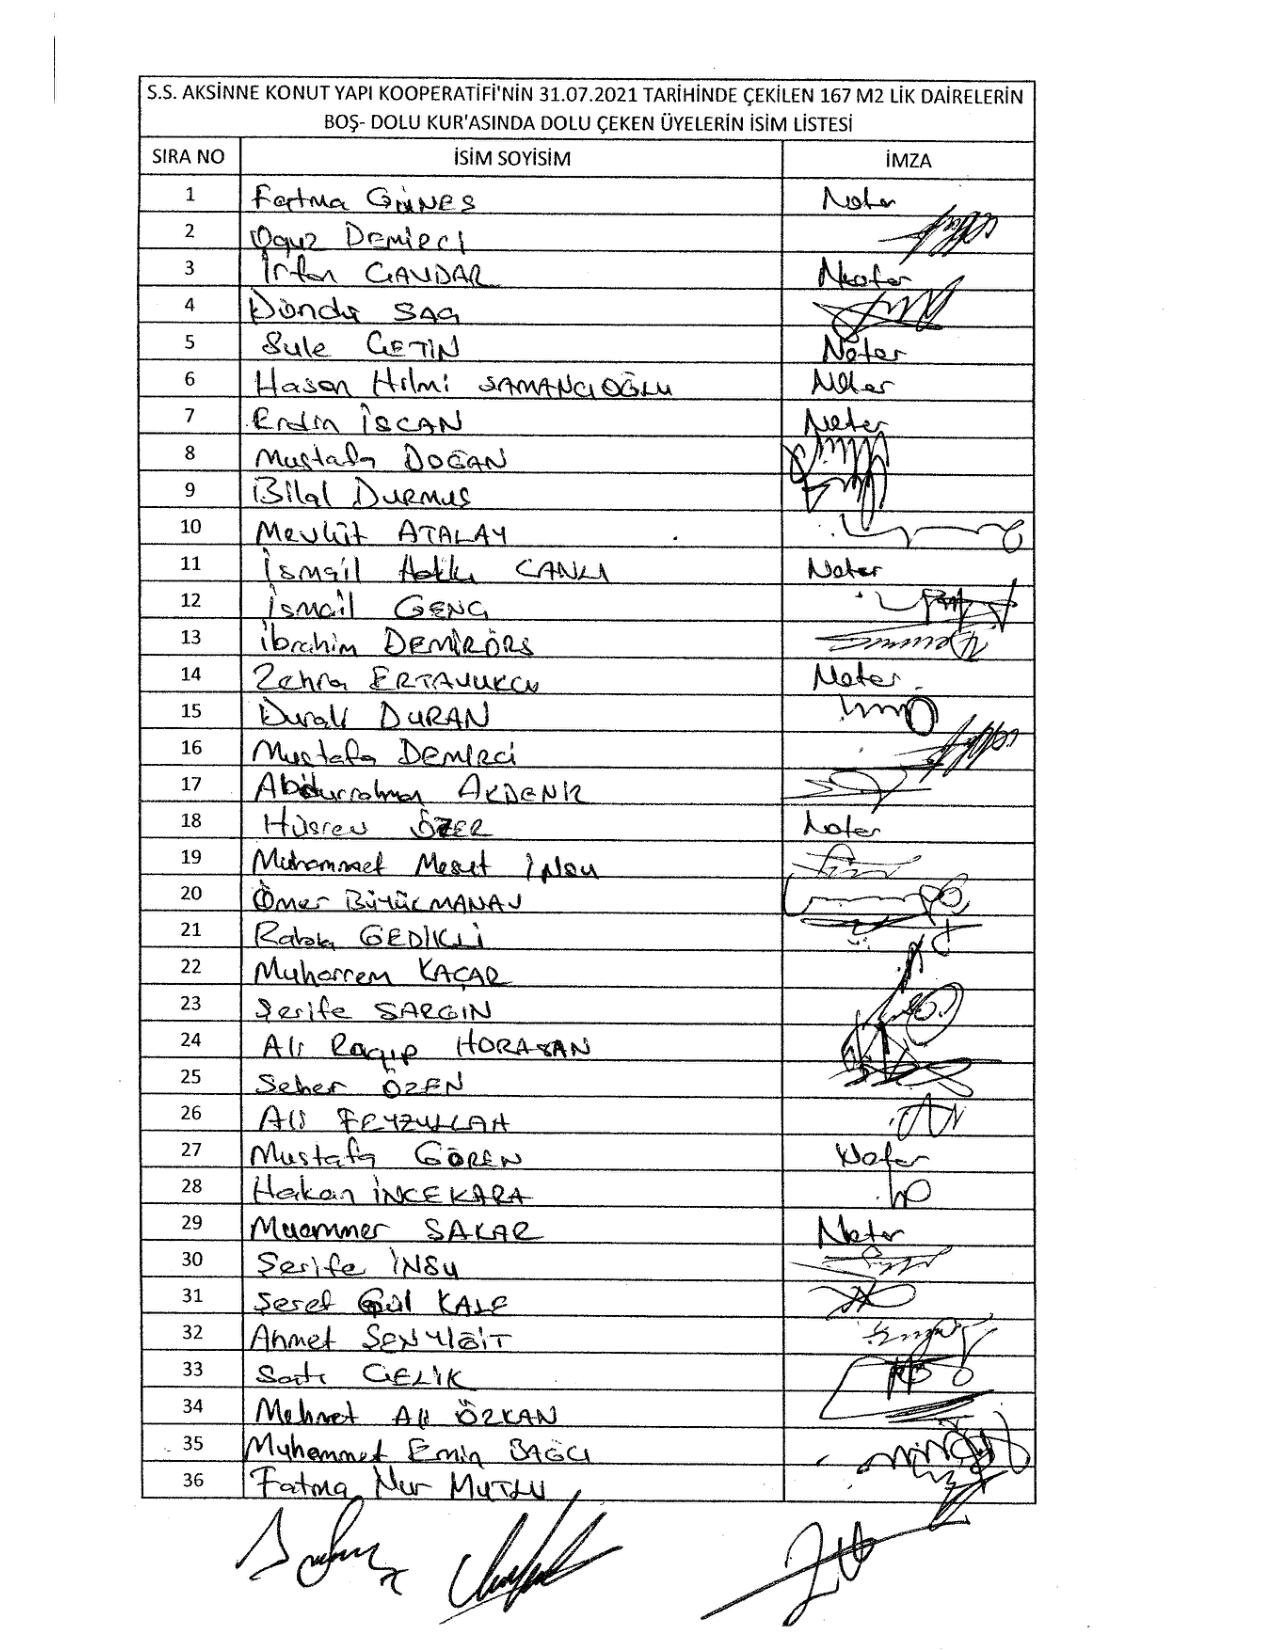 S.S. AKSİNNE KONUT YAPI KOOPERATİFİ'NİN 31.07.2021 TARİHİNDE ÇEKİLEN 167 M2 LİK DAİRELERİN
BOŞ- DOLU KUR'ASINDA DOLU ÇEKEN ÜYELERİN İSİM LİSTESİ
SIRA NO İSİM SOYİSİM İMZA
1 Fatma GÜNEŞ Noter
2 Oğuz DEMİRCİ
3 İrfan CAVDAR Noter
4 Döndü SAG
5 Şule CETİN Noter
6 Hasan Hilmi SAMANCIOĞLU Noter
7 Erdin İSCAN Noter
8 Mustafa DOĞAN
9 Bilal DURMUŞ
10 Mevlüt ATALAY
11 İsmail Hakkı CANLI Noter
12 İsmail GENÇ
13 İbrahim DEMİRÖRS
14 Zehra ERTAVUKCU Noter
15 Durali DURAN
16 Mustafa DEMİRCİ
17 Abdurrahman AKDENİZ
18 Hüsrev ÖZER Noter
19 Muhammet Mesut İNSU
20 Ömer BÜYÜKMANAV
21 Rabia GEDİKLİ
22 Muharrem KAÇAR
23 Şerife SARGIN
24 Ali Ragıp HORASAN
25 Seher ÖZEN
26 Ali FEYZULLAH
27 Mustafa GÖREN Noter
28 Hakan İNCEKARA
29 Muammer SAKAR Noter
30 Şerife İNSU
31 Şeref Gül KALE
32 Ahmet ŞENYİĞİT
33 Satı ÇELİK
34 Mehmet Ali ÖZKAN
35 Muhammet Emin BAĞCI
36 Fatma Nur MUTLU